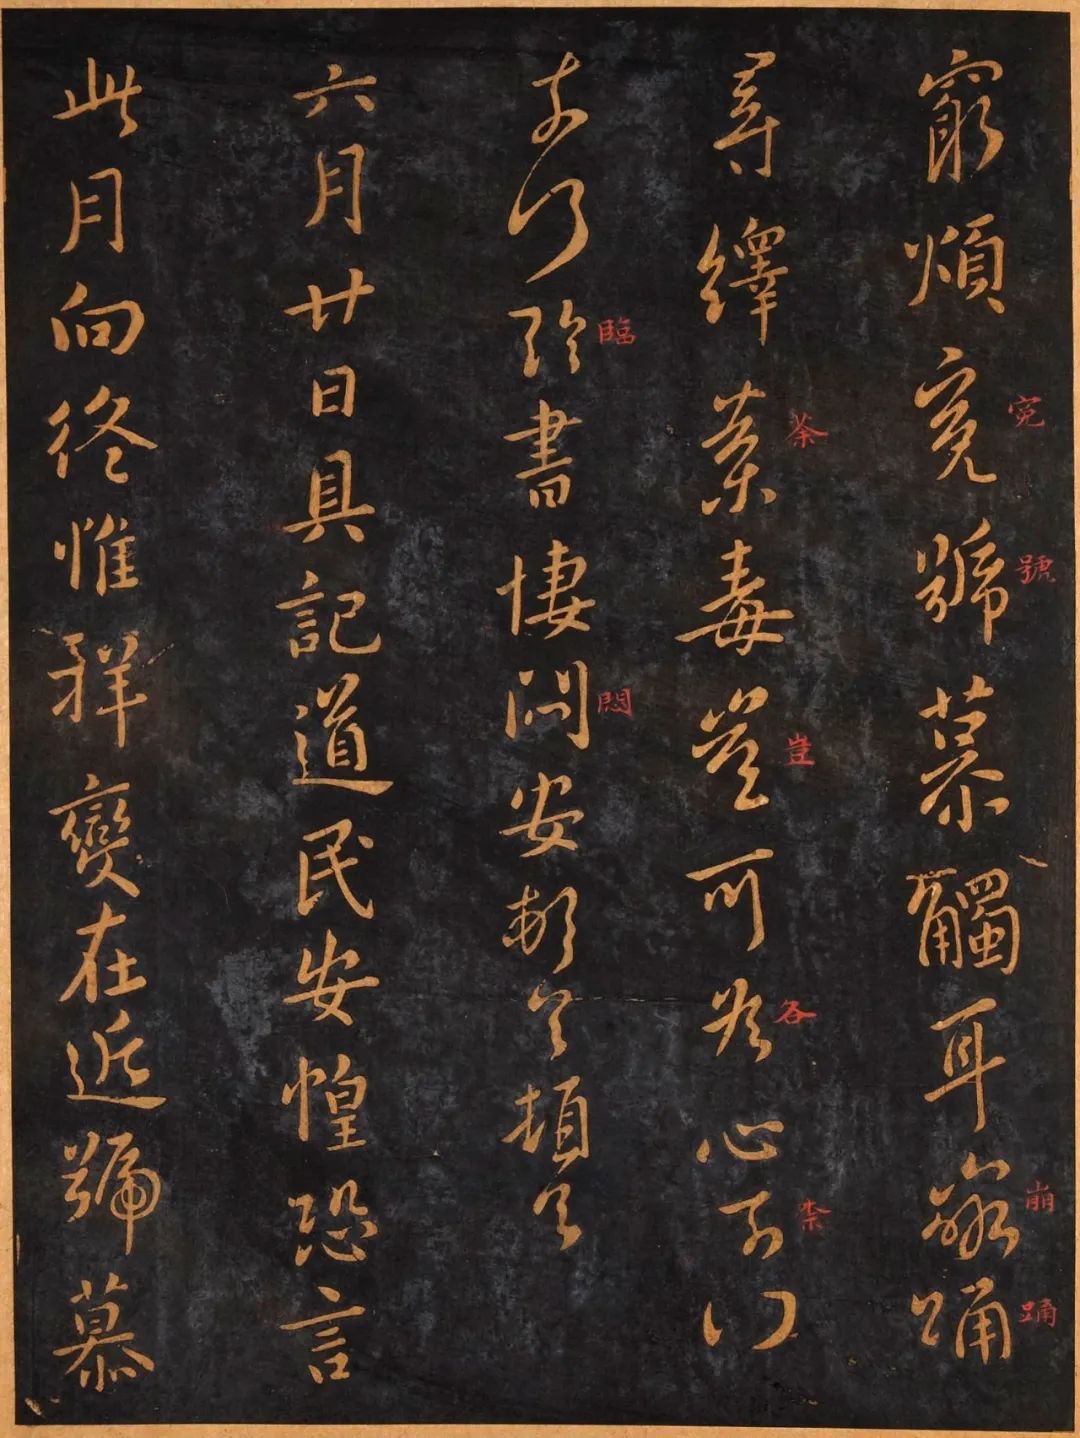 窮煩冤號慕觸耳崩踊
宛
號
崩
踊
尋繹荼毒豈可為心奈何
荼
豈
各
柰
奈何臨書悽悶安頓首頓首
臨
悶
六月廿日具記道民安惶恐言
此月向終惟祥變在近號慕